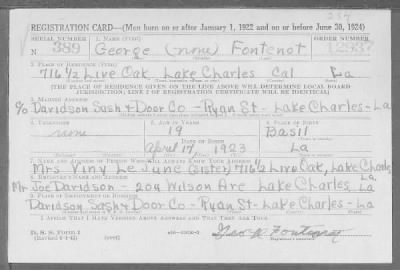 REGISTRATION CARD—(Men born on or after January 1, 1922 and on or before June 30, 1924)
SERIAL NUMBER 1. NAME (Print) ORDER NUMBER
N 389 George (none) Fontenot 12937
2. PLACE OF RESIDENCE (Print)
716 1/2 Live Oak Lake Charles Cal La
[THE PLACE OF RESIDENCE GIVEN ON THE LINE ABOVE WILL DETERMINE LOCAL BOARD
JURISDICTION; LINE 2 OF REGISTRATION CERTIFICATE WILL BE IDENTICAL]
3. MAILING ADDRESS
c/o Davidson Sash & Door Co - Ryan St - Lake Charles - La
4. TELEPHONE 5. AGE IN YEARS 6. PLACE OF BIRTH
none 19 Basil
DATE OF BIRTH
April 17, 1923 La
7. NAME AND ADDRESS OF PERSON WHO WILL ALWAYS KNOW YOUR ADDRESS
Mrs Viny Le June (sister) 716 1/2 Live Oak, Lake Charles La
8. EMPLOYER'S NAME AND ADDRESS
Mr Joe Davidson - 204 Wilson Ave Lake Charles La
9. PLACE OF EMPLOYMENT OR BUSINESS
Davidson Sash & Door Co - Ryan St - Lake Charles - La
I AFFIRM THAT I HAVE VERIFIED ABOVE ANSWERS AND THAT THEY ARE TRUE.
D. S. S. Form 1
Geo Fontenot